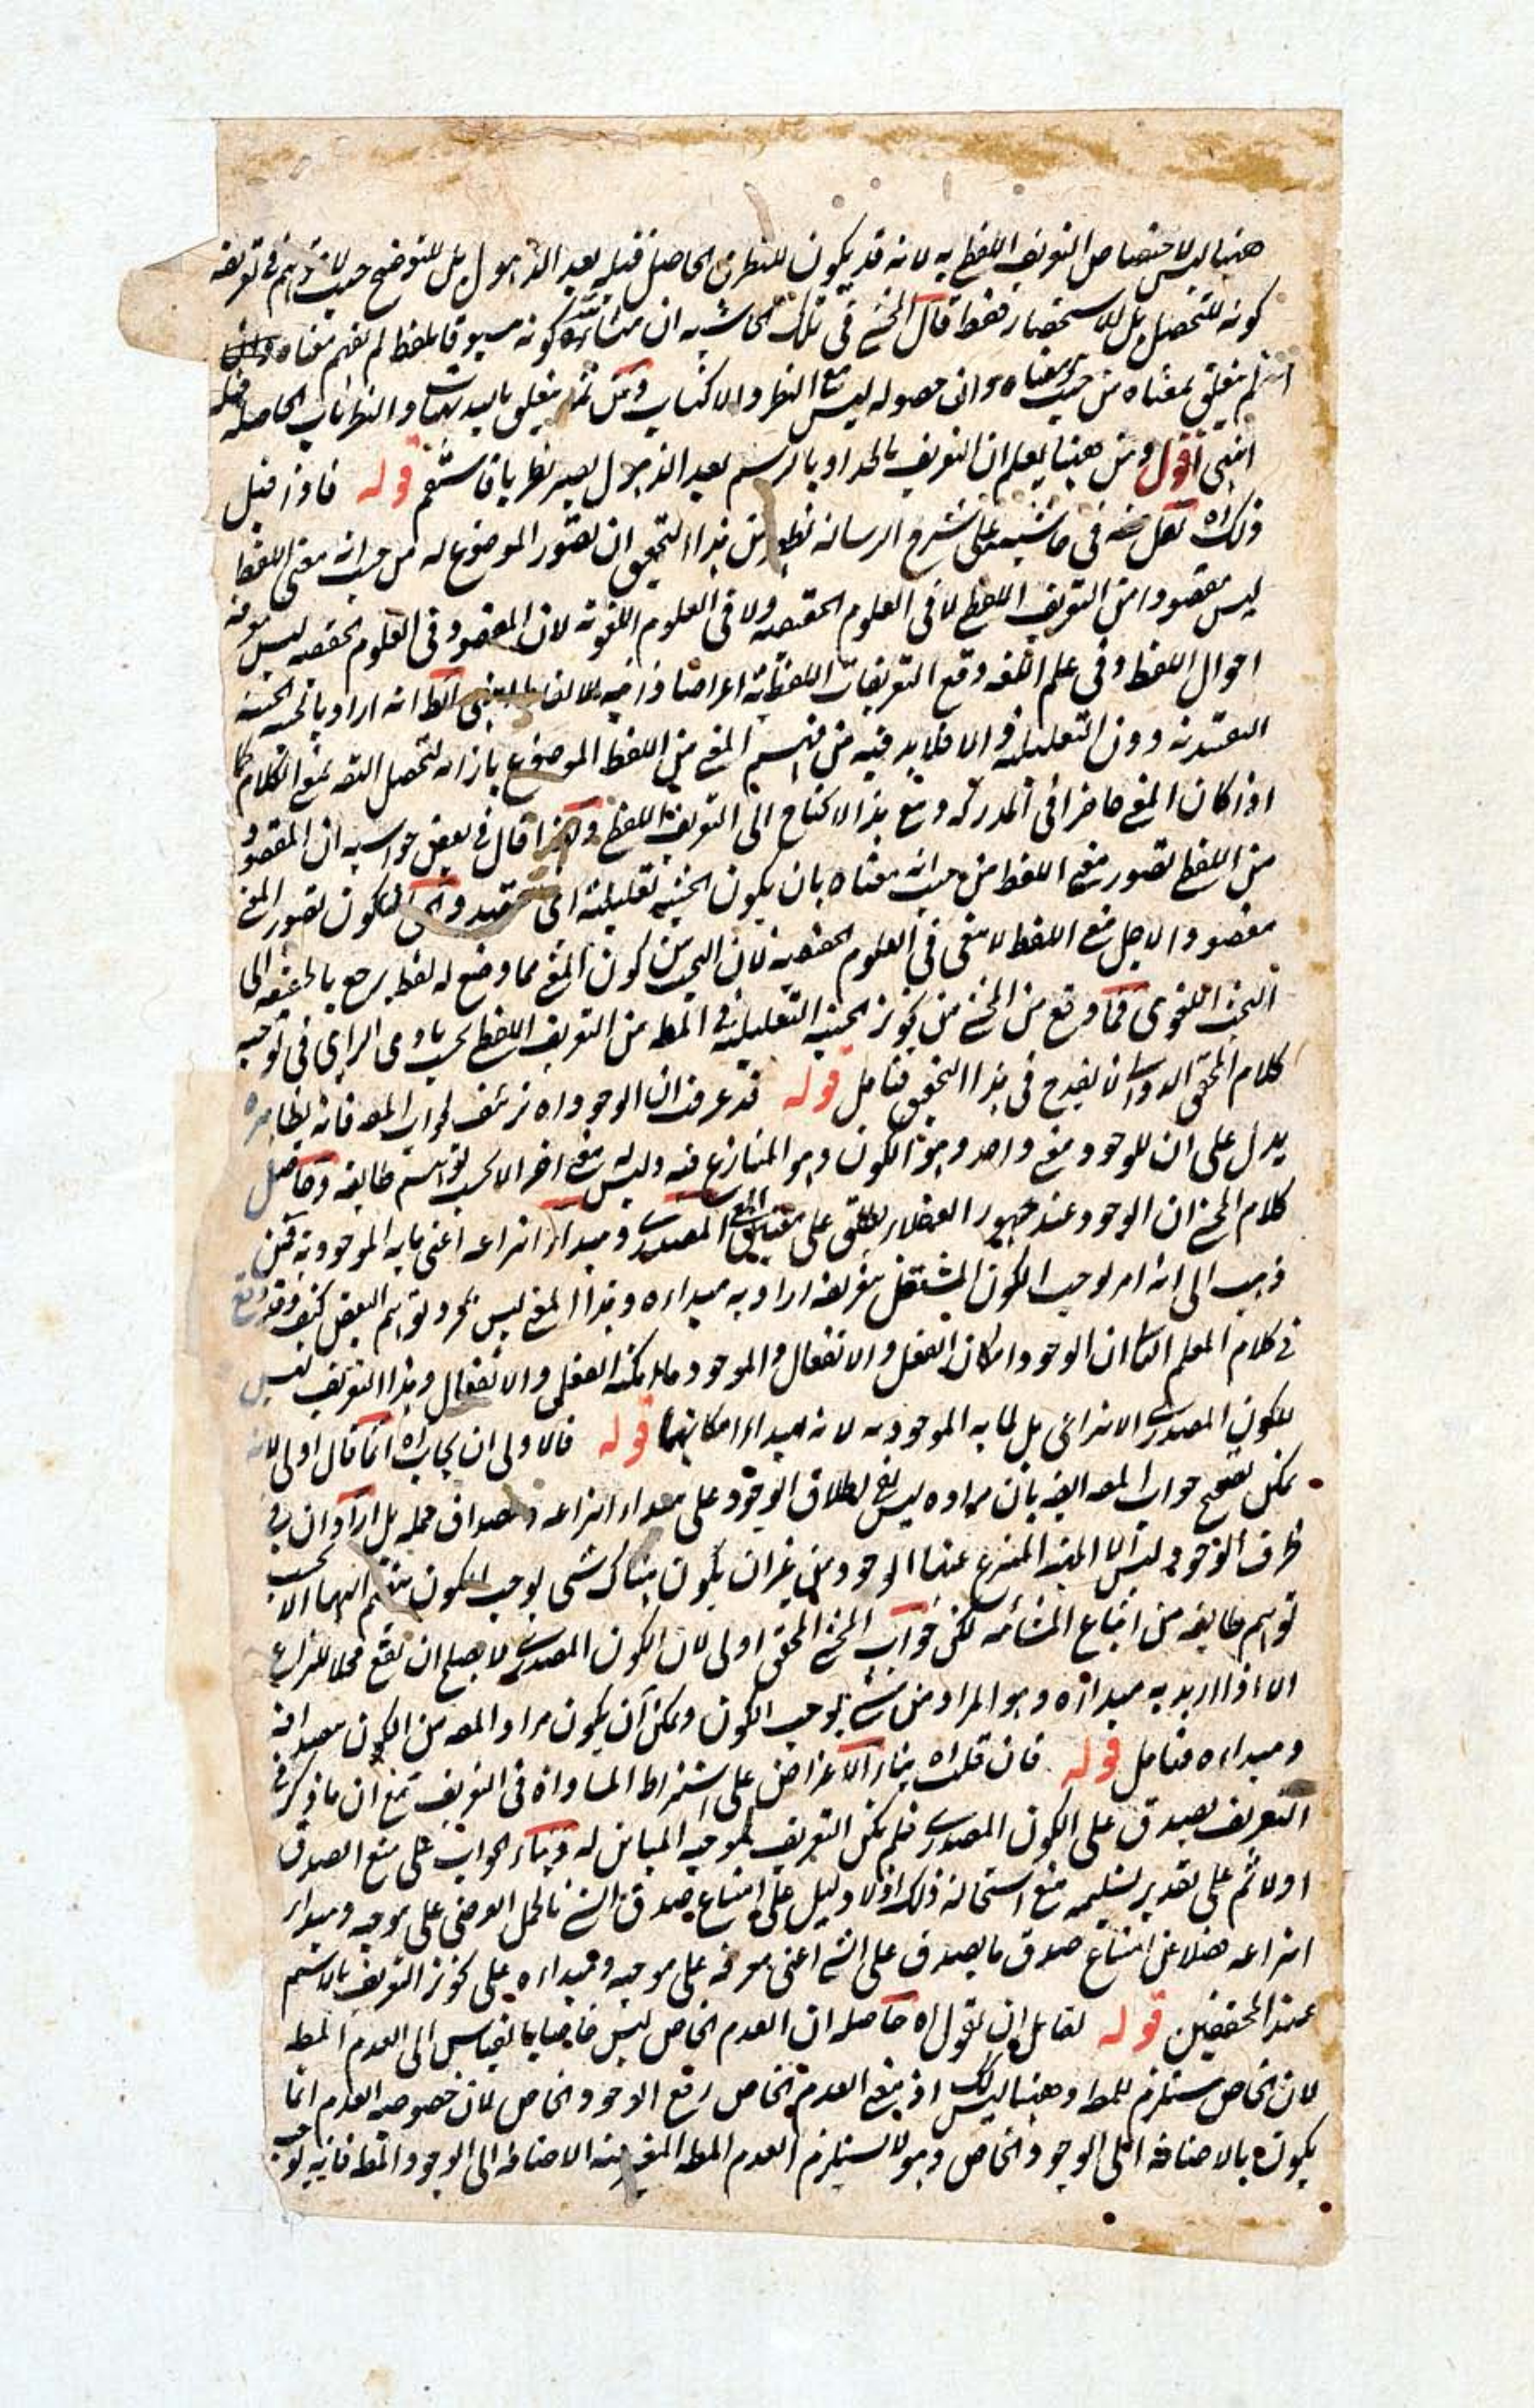 هنا ليس لاختصاص التعريف اللفظي به لانه قد يكون للنظري الحاصل قبله بعد الذهول بل للتوضيح حيث لا يتوهم في تعريفه
كونه للتحصيل بل للاستحضار فقط قال المحشي في تلك الحاشية ان كونه مسبوقا بلفظ لم يفهم معناه
لم يتعلق بمعناه من حيث معناه وان حصوله ليس النظر والاكتساب ومن ثم يتعلق بالبديهيات والنظريات الحاصلة قبله
انتهى اقول ومن هنا يعلم ان التعريف بالحد او بالرسم بعد الذهول يصير نظريا فاستقم قوله فاذا قيل
ذلك اه نقل عنه في حاشيته على شرح الرسالة يظهر من هذا التحقيق ان تصور الموضوع له من حيث انه معنى اللفظ
ليس مقصودا من التعريف اللفظي لا في العلوم الحقيقية ولا في العلوم اللغوية لان المقصود في العلوم الحقيقية ليس معرفة
احوال اللفظ وفي علم اللغة وقع التعريفات اللفظية للالفاظ انتهى الظ انه اراد بالحيثية الحيثية
التقييدية دون التعليلية والا فلا بد فيه من فهم المعنى من اللفظ الموضوع بازائه لتحصل الثقة بمعنى الكلام كما
اذا كان المعنى حاضرا في المدركة ومع هذا الاحتاج الى التعريف اللفظي ولذا قال في بعض حواشيه ان المقصود
من اللفظي تصور معنى اللفظ من حيث انه معناه بان يكون الحيثية تعليلية اى تقييد يكون تصور المعنى
مقصودا لاجل معنى اللفظ لا معنى في العلوم الحقيقية لان البحث من كون المعنى مما وضع له لفظ يرجع بالحقيقة الى
البحث اللغوي فما وقع من المحشي من تجويز الحيثية التعليلية في المط من التعريف اللفظي بحسب بادي الراي في توجيه
كلام المحقق الدواني لا يقدح في هذا التحقيق فتامل قوله قد عرفت ان الوجود اه تزييف لجواب المصه فانه بظاهره
يدل على ان للوجود معنى واحد وهو الكون وهو المتنازع فيه وليس معنى اخر الا بحسب توهم طايفة وحاصل
كلام المحشي ان الوجود عند جمهور العقلاء يطلق على معنيين المعنى المصدري ومبدأ انتزاعه اعني ما به الموجودية فمن
ذهب الى انه امر يوجب الكون المشتغل بتعريفه اراد به مبداءه وهذا المعنى ليس بمجرد توهم البعض كيف وقد وقع
في كلام المعلم الثاني ان الوجود امكان الفعل والانفعال والموجود ما امكنه الفعل والانفعال وهذا التعريف ليس
للكون المصدري الانتزاعي بل لما به الموجودية لانه مبداء امكانهما قوله فالاولى ان يجاب اه انما قال اولى لانه
يمكن تصحيح جواب المصه ايضه بان مراده ليس نفي اطلاق الوجود على مبداء انتزاعه ومصداق حمله بل اراد ان في
ظرف الوجود ليس الا المهية المنتزع عنها الوجود من غير ان يكون هناك شي يوجب الكون ينضم اليها الا بحسب
توهم طايفة من اتباع المشائيه لكن جواب المحشي المحقق اولى لان الكون المصدري لا يصلح ان يقع محلا للنزاع
الا اذا اريد به مبداءه وهو المراد من شي يوجب الكون ويمكن ان يكون مراد المصه من الكون مصداقه
ومبداءه فتامل قوله فان قلت اه بناء الاعتراض على اشتراط المساواة في التعريف مع ان ما ذكر في
التعريف يصدق على الكون المصدري فلم يكن التعريف لموجبه المباين له وبناء الجواب على منع الصدق
اولا ثم على تقدير تسليمه منع استحالة ذلك اذ لا دليل على امتناع صدق الشي بالحمل العرضي على موجبه ومبداء
انتزاعه فضلا عن امتناع صدق ما يصدق على الشي اعني معرفه على موجبه ومبداءه على تجويز التعريف بالاعم
عند المحققين قوله لقايل ان يقول اه حاصله ان العدم الخاص ليس خاصا بالقياس الى العدم المط
لان الخاص يستلزم للمط وههنا ليس كك اذ معنى العدم الخاص رفع الوجود الخاص لان خصوصية العدم انما
يكون بالاضافة الى الوجود الخاص وهو لا يستلزم العدم المط المعتبر فيه الاضافة الى الوجود المط فانه